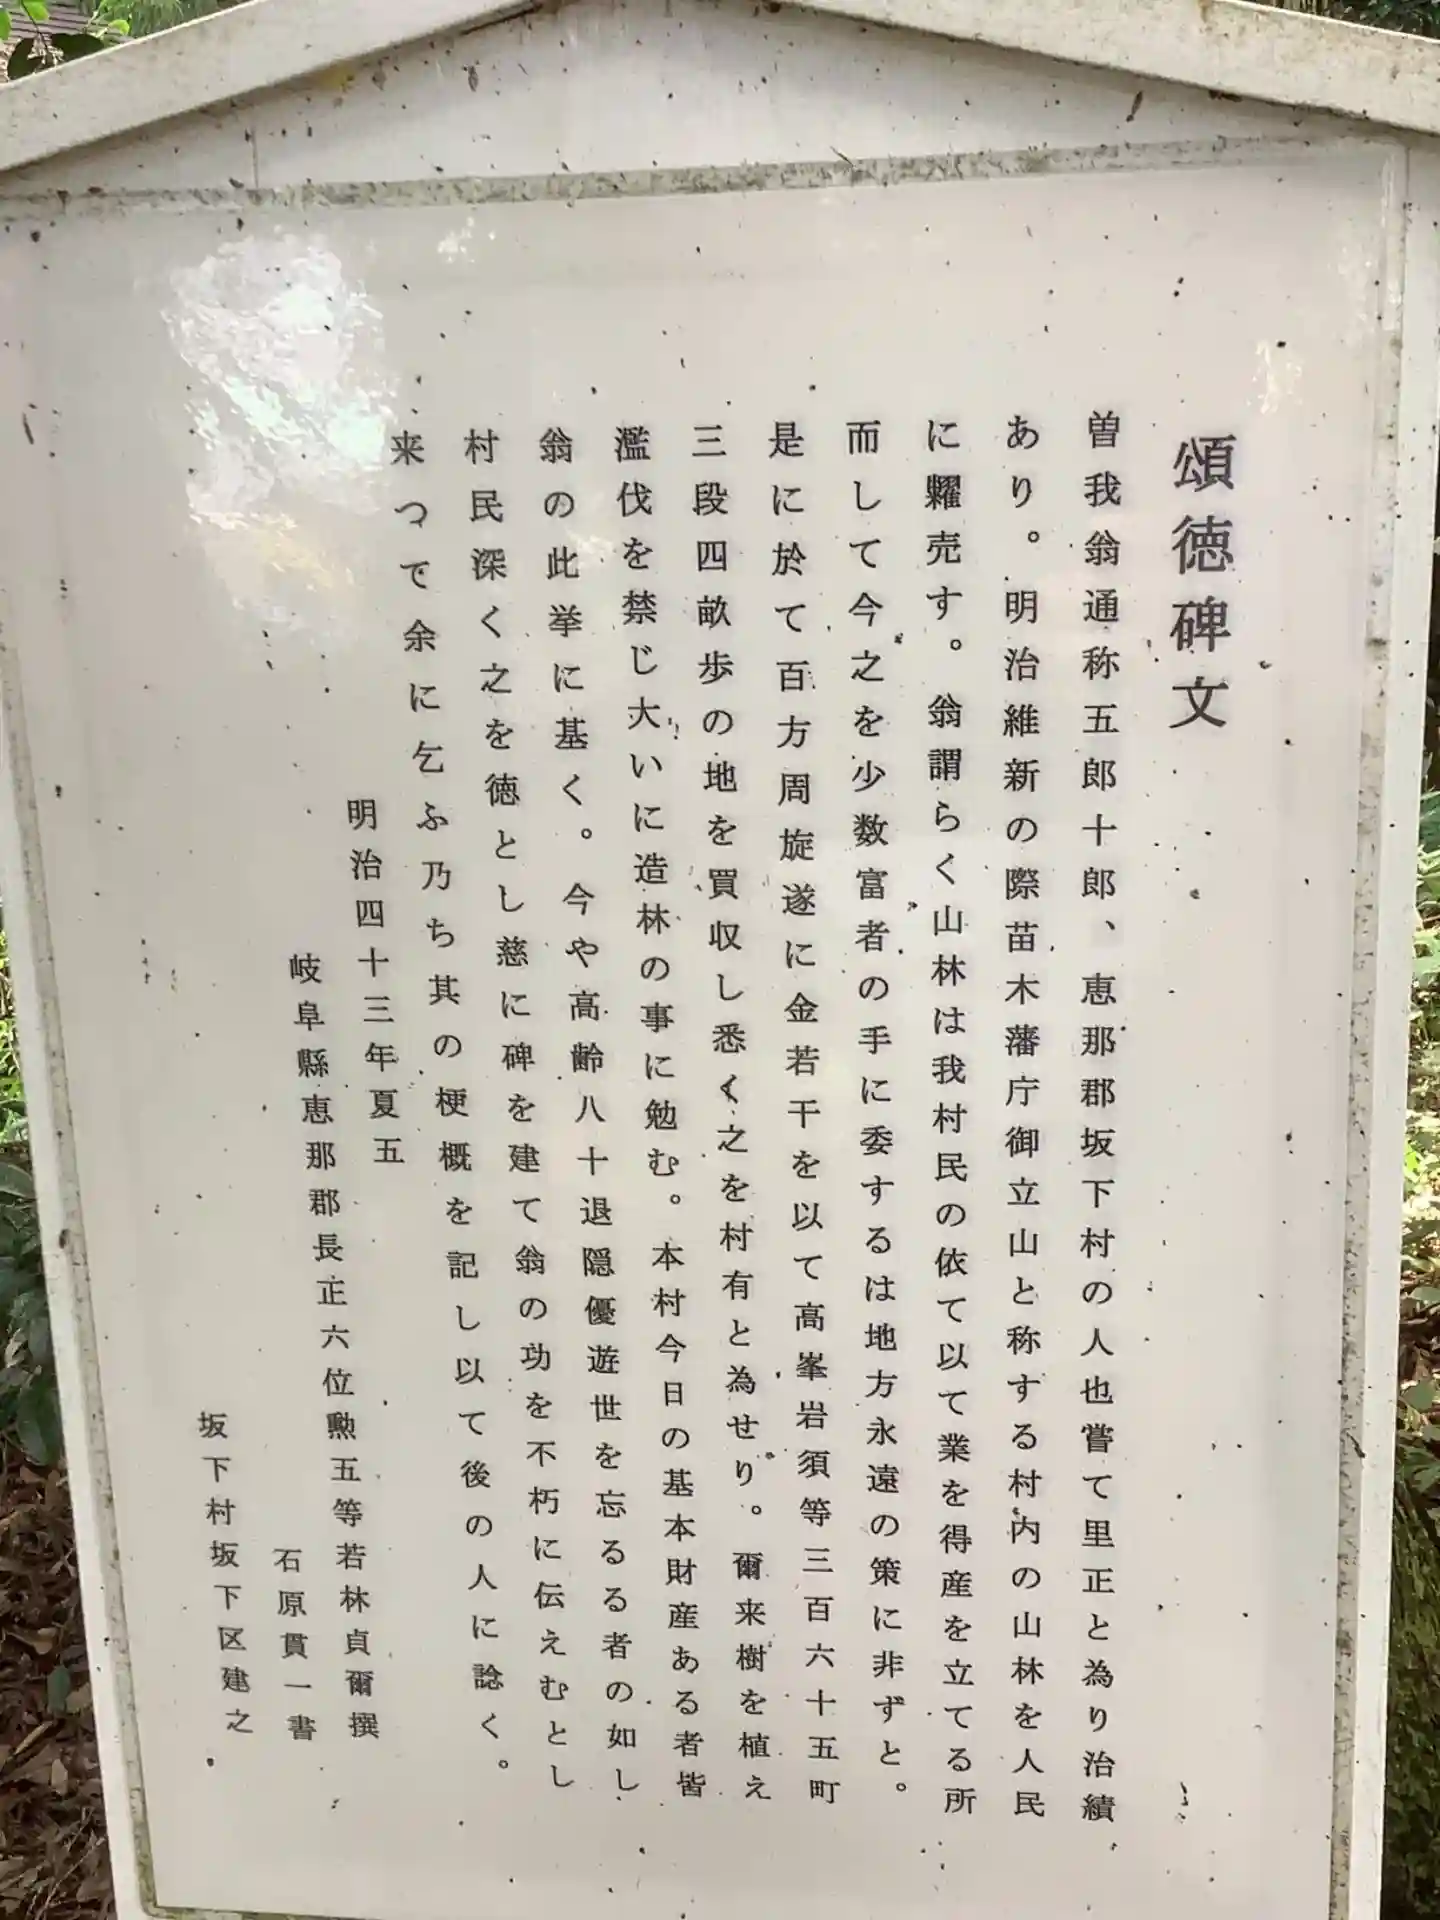 頌徳碑文
曽我翁通称五郎十郎、恵那郡坂下村の人也嘗て里正と為り治績
あり。明治維新の際苗木藩庁御立山と称する村内の山林を人民
に糶売す。翁謂らく山林は我村民の依て以て業を得産を立てる所
而して今之を少数富者の手に委するは地方永遠の策に非ずと。
是に於て百方周旋遂に金若干を以て高峯岩須等三百六十五町
三段四畝歩の地を買収し悉く之を村有と為せり。爾来樹を植え
濫伐を禁じ大いに造林の事に勉む。本村今日の基本財産ある者皆
翁の此挙に基く。今や高齢八十退隠優遊世を忘るる者の如し
村民深く之を徳とし慈に碑を建て翁の功を不朽に伝えむとし
来つて余に乞ふ乃ち其の梗概を記し以て後の人に諗く。
明治四十三年夏五
岐阜縣恵那郡長正六位勲五等若林貞爾撰
石原貫一書
坂下村坂下区建之